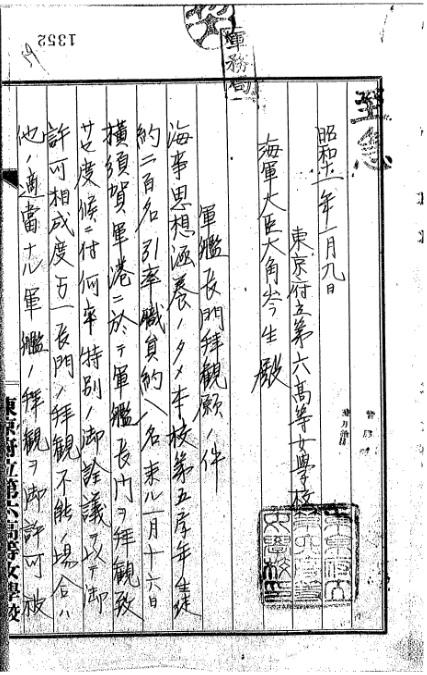 1352
軍務局
昭和十一年一月九日
東京府立第六高等女學校
海軍大臣大角岑生殿
軍艦長門拜観願ノ件
海事思想涵養ノタメ本校第五学年生徒
約二百名引率職員約八名来ル一月十六日
横須賀軍港ニ於テ軍艦長門ヲ拜観致
サセ度候ニ付何卒特別ノ御詮議ヲ以テ御
許可相成度万一長門ノ拜観不能ノ場合ハ
他ノ適當ナル軍艦ノ拜観ヲ御許可被
東京府立第六高等女學校